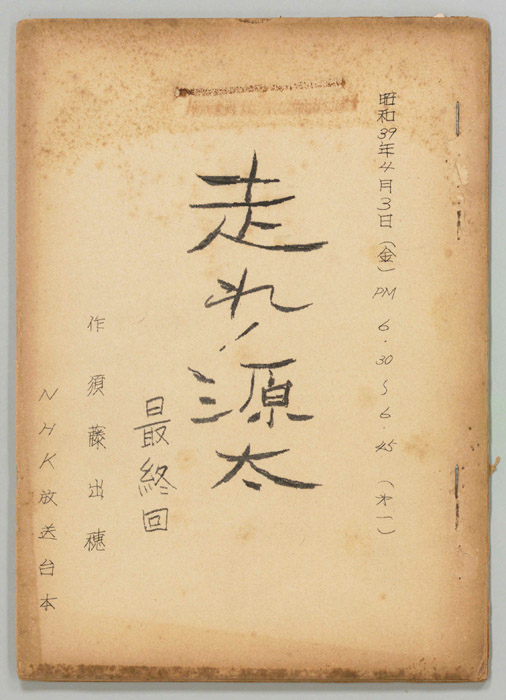 昭和39年4月3日（金）PM 6.30～6.45（オ一）
走れ！源太
最終回
作 須藤出穂
NHK放送台本